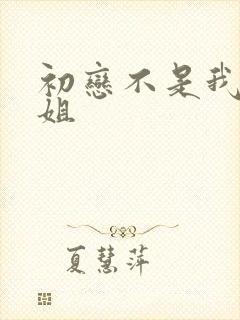 初戀不是我
姐
夏慧萍